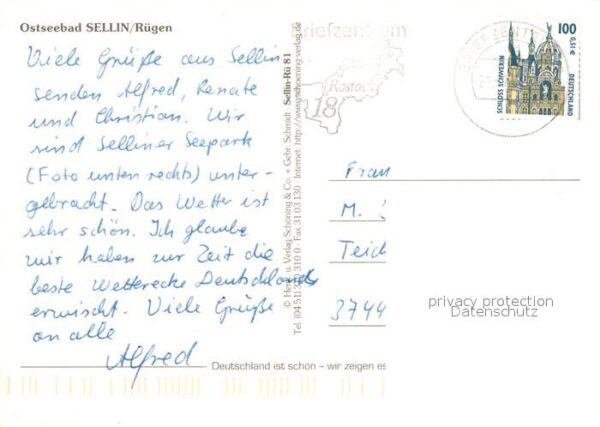 Ostseebad SELLIN/Rügen
Viele Grüße aus Sellin
senden Alfred, Renate
und Christian. Wir
sind Selliner Seepark
(Foto unten rechts) unter-
gebracht. Das Wetter ist
sehr schön. Ich glaube
wir haben zur Zeit die
beste Wetterecke Deutschlands
erwischt. Viele Grüße
an alle
Alfred
Deutschland ist schön – wir zeigen es
© Herst. u. Verlag Schöning & Co. + Gebr. Schmidt Sellin-Rü 81
Tel. (04 51) 3 10 310 0 · Fax 31 03 130 · Internet: http://www.schoening-verlag.de
Briefzentrum
18
Rostock
BRIEFZENTR
100
0,51€
SCHLOSS SCHWERIN
DEUTSCHLAND
Frau
M.
Teich
3744
privacy protection
Datenschutz